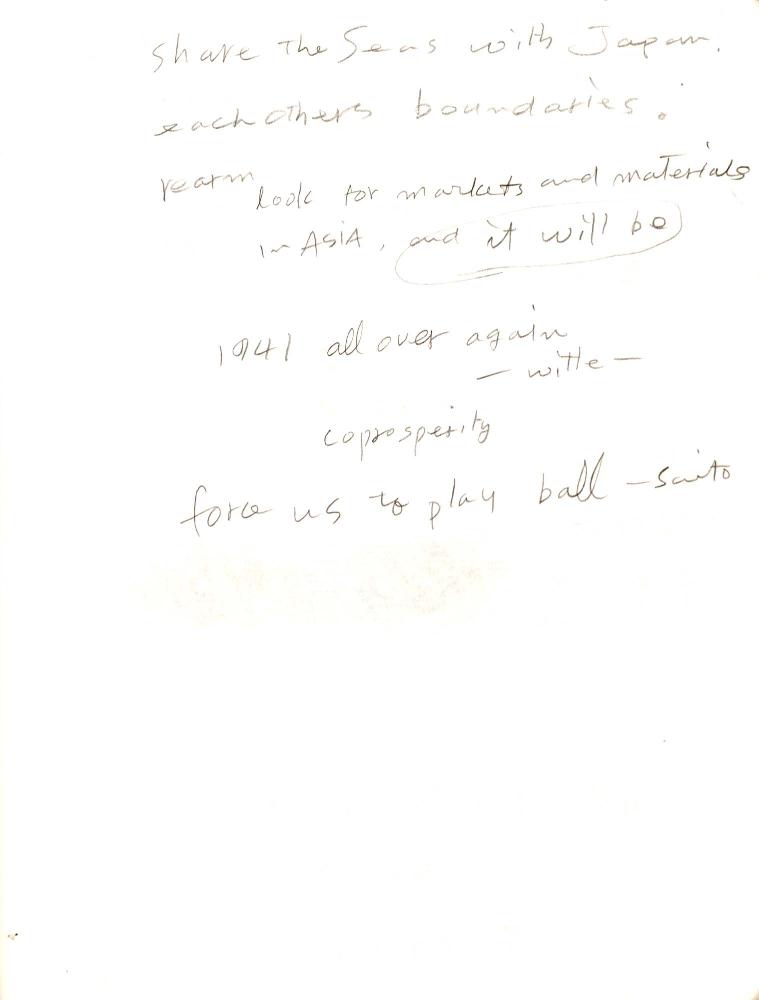 Share The Seas with Japan.
each others boundaries.
rearm look for markets and materials
in ASIA, and it will be
1941 all over again
— witte —
coprosperity
force us to play ball — Saito